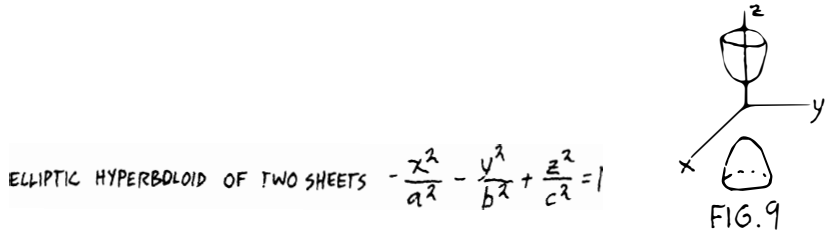 z
y
x
ELLIPTIC HYPERBOLOID OF TWO SHEETS -x²/a² - y²/b² + z²/c² = 1
FIG. 9